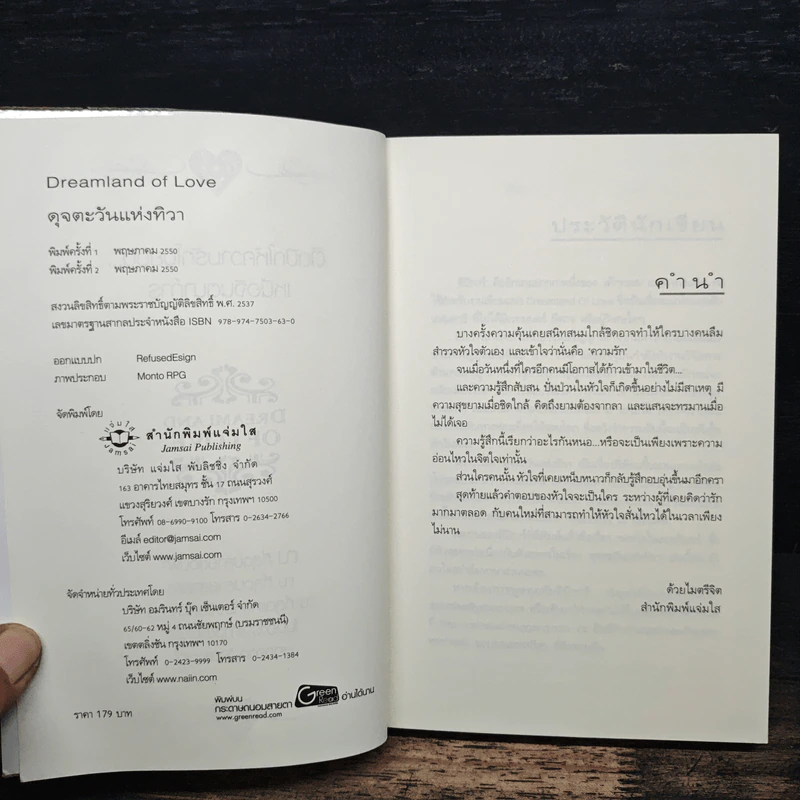 Dreamland of Love
ดุจตะวันแห่งทิวา
พิมพ์ครั้งที่ 1 พฤษภาคม 2550
พิมพ์ครั้งที่ 2 พฤษภาคม 2550
สงวนลิขสิทธิ์ตามพระราชบัญญัติลิขสิทธิ์ พ.ศ. 2537
เลขมาตรฐานสากลประจำหนังสือ ISBN 978-974-7503-63-0
ออกแบบปก RefusedEsign
ภาพประกอบ Monto RPG
จัดพิมพ์โดย
แจ่มใส
Jamsai
สำนักพิมพ์แจ่มใส
Jamsai Publishing
บริษัท แจ่มใส พับลิชชิ่ง จำกัด
163 อาคารไทยสมุทร ชั้น 17 ถนนสุรวงศ์
แขวงสุริยวงศ์ เขตบางรัก กรุงเทพฯ 10500
โทรศัพท์ 08-6990-9100 โทรสาร 0-2634-2766
อีเมล์ editor@jamsai.com
เว็บไซต์ www.jamsai.com
จัดจำหน่ายทั่วประเทศโดย
บริษัท อมรินทร์ บุ๊ค เซ็นเตอร์ จำกัด
65/60-62 หมู่ 4 ถนนชัยพฤกษ์ (บรมราชชนนี)
เขตตลิ่งชัน กรุงเทพฯ 10170
โทรศัพท์ 0-2423-9999 โทรสาร 0-2434-1384
เว็บไซต์ www.naiin.com
ราคา 179 บาท
พิมพ์บน
กระดาษถนอมสายตา
www.greenread.com
Green Read
อ่านได้นาน
คำนำ
บางครั้งความคุ้นเคยสนิทสนมใกล้ชิดอาจทำให้ใครบางคนลืม
สำรวจหัวใจตัวเอง และเข้าใจว่านั่นคือ 'ความรัก'
จนเมื่อวันหนึ่งที่ใครอีกคนมีโอกาสได้ก้าวเข้ามาในชีวิต...
และความรู้สึกสับสน ปั่นป่วนในหัวใจก็เกิดขึ้นอย่างไม่มีสาเหตุ มี
ความสุขยามเมื่อชิดใกล้ คิดถึงยามต้องจากลา และแสนจะทรมานเมื่อ
ไม่ได้เจอ
ความรู้สึกนี้เรียกว่าอะไรกันหนอ...หรือจะเป็นเพียงเพราะความ
อ่อนไหวในจิตใจเท่านั้น
ส่วนใครคนนั้น หัวใจที่เคยเหน็บหนาวก็กลับรู้สึกอบอุ่นขึ้นมาอีกครา
สุดท้ายแล้วคำตอบของหัวใจจะเป็นใคร ระหว่างผู้ที่เคยคิดว่ารัก
มากมาตลอด กับคนใหม่ที่สามารถทำให้หัวใจสั่นไหวได้ในเวลาเพียง
ไม่นาน
ด้วยไมตรีจิต
สำนักพิมพ์แจ่มใส